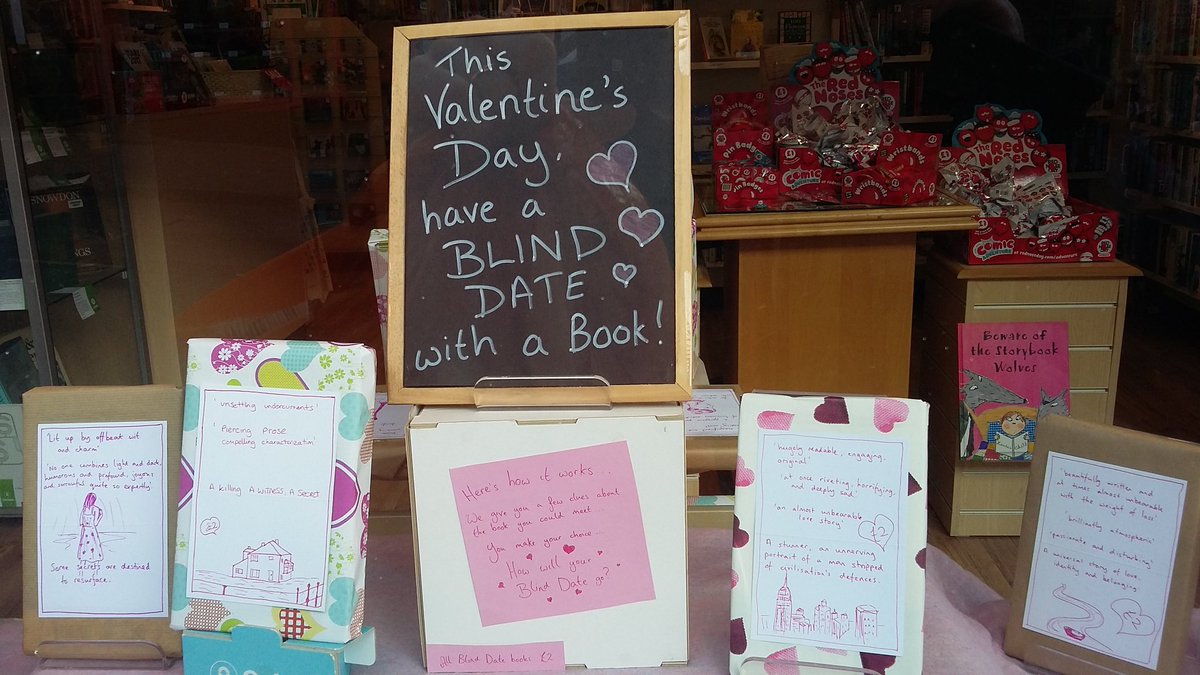 This
Valentine's
Day,
have a
BLIND
DATE
with a Book!
Here's how it works...
We give you a few clues about
the book you could meet...
You make your choice...
How will your
Blind Date go?
All Blind Date books £2
'Lit up by offbeat wit
and charm'
'No one combines light and dark,
humorous and profound, joyous
and sorrowful quite so expertly'
Some secrets are destined
to resurface.
'unsettling undercurrents'
'Piercing prose
compelling characterization'
A Killing. A Witness. A Secret
£2
'hugely readable, engaging,
original'
'at once riveting, horrifying,
and deeply sad'
'an almost unbearable
love story'
£2
A stunner, an unnerving
portrait of a man stripped
of civilisation's defences.
'beautifully written and
at times almost unbearable
with the weight of loss'
'brilliantly atmospheric'
'passionate and disturbing'
A universal story of love,
identity and belonging
£2
Beware of
the Storybook
Wolves
The
Red
Noses
Wristbands
Pin Badges
£1
Wristbands
Comic
Pin Badges
The
Red
Noses
£1
Comic
SNOWDON